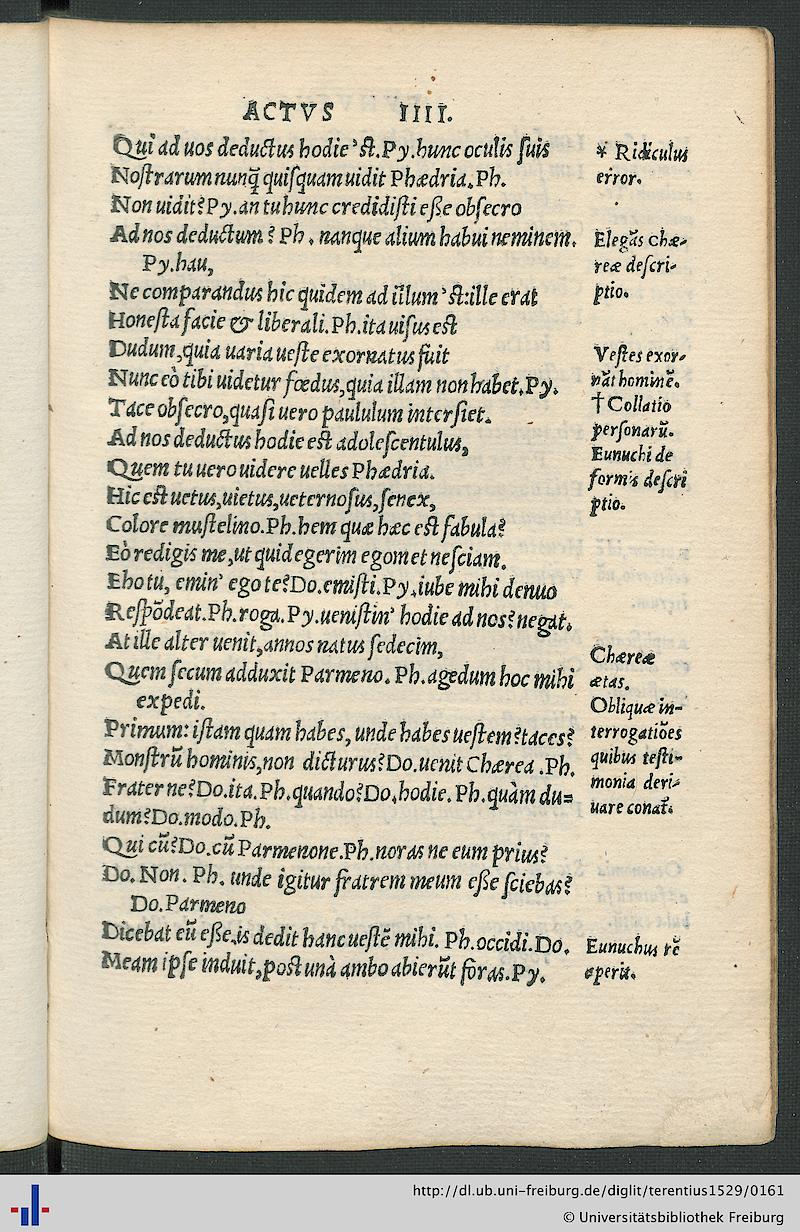 ACTVS IIII.
Qui ad uos deductus hodie 'st.Py.hunc oculis suis
Nostrarum nunq̃ quisquam uidit Phædria.Ph.
Non uidit?Py.an tu hunc credidisti esse obsecro
Ad nos deductum? Ph. nanque alium habui neminem.
Py.hau,
Ne comparandus hic quidem ad illum 'st:ille erat
Honesta facie & liberali.Ph.ita uisus est
Dudum,quia uaria ueste exornatus fuit
Nunc eò tibi uidetur fœdus,quia illam non habet.Py.
Tace obsecro,quasi uero paululum intersiet.
Ad nos deductus hodie est adolescentulus,
Quem tu uero uidere uelles Phædria.
Hic est uetus,uietus,ueternosus,senex,
Colore mustelino.Ph.hem quæ hæc est fabula?
Eò redigis me,ut quid egerim egomet nesciam.
Eho tu, emin' ego te?Do.emisti.Py.iube mihi denuo
Respõdeat.Ph.roga.Py.uenistin' hodie ad nos?negat.
At ille alter uenit,annos natus sedecim,
Quem secum adduxit Parmeno. Ph.agedum hoc mihi
expedi.
Primum: istam quam habes, unde habes uestem?taces?
Monstrũ hominis,non dicturus?Do.uenit Chærea .Ph.
Frater ne?Do.ita.Ph.quando?Do.hodie. Ph.quàm du=
dum?Do.modo.Ph.
Qui cũ?Do.cũ Parmenone.Ph.noras ne eum prius?
Do. Non. Ph. unde igitur fratrem meum esse sciebas?
Do.Parmeno
Dicebat eũ esse.is dedit hanc uestẽ mihi. Ph.occidi.Do.
Meam ipse induit,post unà ambo abierũt foras.Py.
* Ridiculus
error.
Elegãs chæ-
reæ descri-
ptio.
Vestes exor-
nãt hominẽ.
† Collatio
personarũ.
Eunuchi de
formis descri
ptio.
Chæreæ
ætas.
Obliquæ in-
terrogatiões
quibus testi-
monia deri-
uare conat̃.
Eunuchus rẽ
aperit.
http://dl.ub.uni-freiburg.de/diglit/terentius1529/0161
© Universitätsbibliothek Freiburg